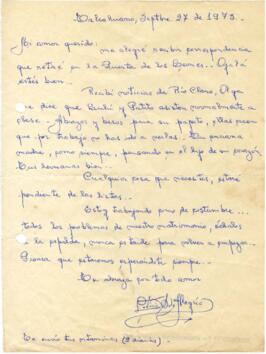 Talcahuano, Septbre 27 de 1973.
Mi amor querido: me alegró recibir correspondencia
que retiré en la Puerta de los Leones. Ojalá
estés bien.
Recibí noticias de Río Claro, Olga
me dice que y Patito asisten normalmente a
clase. Abrazos y besos para su papito, ellas creen
que por trabajo no has ido a verlas. Tu anciana
madre, como siempre, pensando en el hijo de su corazón.
Tus hermanas bien.
Cualquier cosa que necesites, estaré
pendiente de las listas.
Estoy trabajando como de costumbre...
todos los problemas de nuestro matrimonio, échatelos
a la espalda, nunca es tarde para volver a empezar.
Piensa que estaremos esperándote siempre.
Te abraza con todo amor
Te envío tus vitaminas (2 diarias).